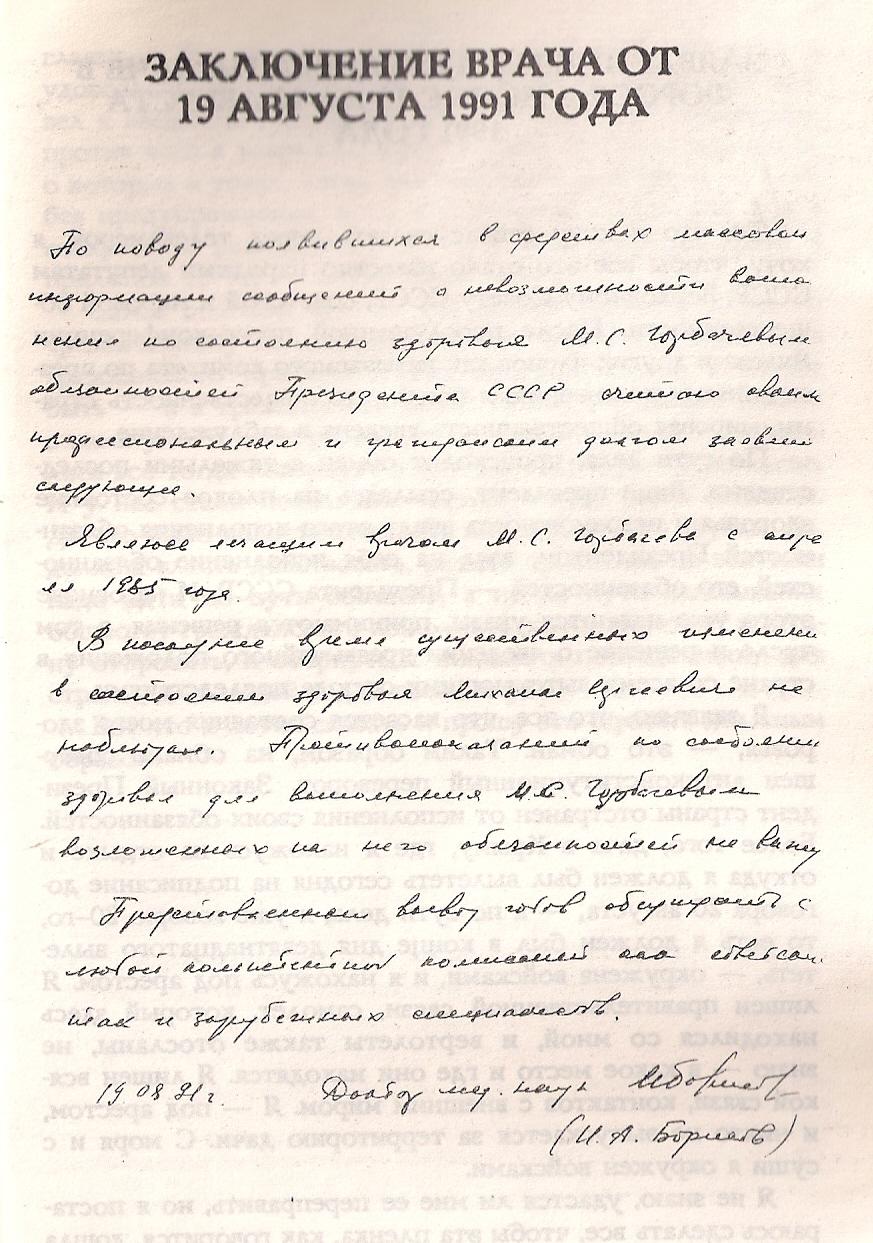 ЗАКЛЮЧЕНИЕ ВРАЧА ОТ
19 АВГУСТА 1991 ГОДА
По поводу появившихся в средствах массовой
информации сообщений о невозможности выпол
нения по состоянию здоровья М. С. Горбачевым
обязанностей Президента СССР считаю своим
профессиональным и гражданским долгом заявить
следующее.
Являюсь лечащим врачом М. С. Горбачева с апре
ля 1985 года.
В последнее время существенных изменений
в состоянии здоровья Михаила Сергеевича не
наблюдал. Противопоказаний по состоянию
здоровья для выполнения М.С. Горбачевым
возложенных на него обязанностей не вижу
Представленный вывод готов обсуждать с
любой компетентной комиссией как советских
так и зарубежных специалистов.
19 08 91 г. Доктор мед. наук
(И. А. Борисов)